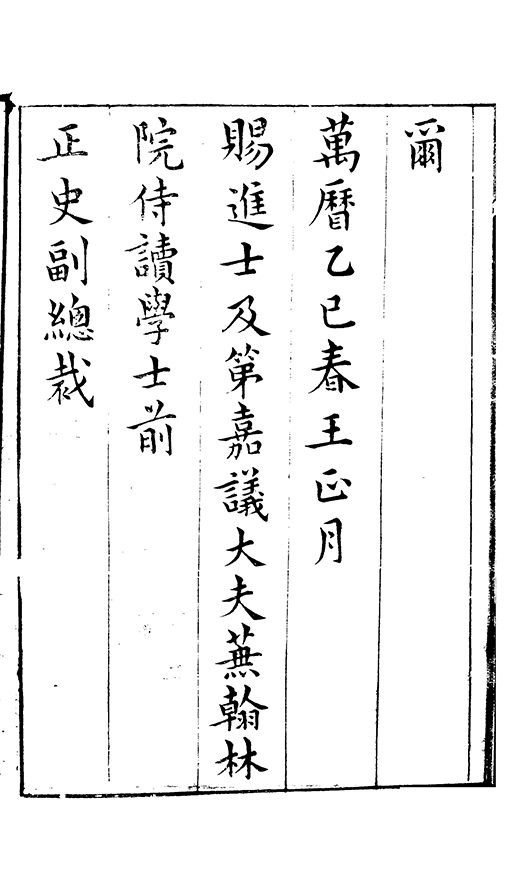 爾
萬曆乙巳春王正月
賜進士及第嘉議大夫兼翰林
院侍讀學士前
正史副總裁